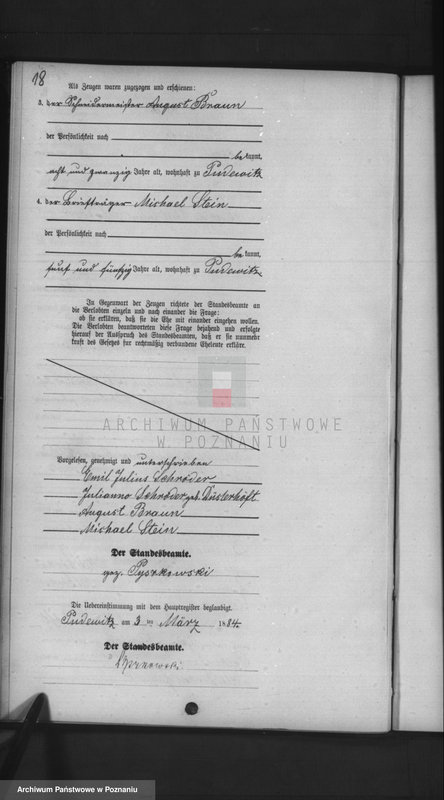 18
Als Zeugen waren zugezogen und erschienen:
3. der Schneidermeister August Braun
der Persönlichkeit nach
be kannt,
acht und zwanzig Jahre alt, wohnhaft zu Pudewitz
4. der Briefträger Michael Stein
der Persönlichkeit nach
be kannt,
fünf und fünfzig Jahre alt, wohnhaft zu Pudewitz.
In Gegenwart der Zeugen richtete der Standesbeamte an
die Verlobten einzeln und nach einander die Frage:
ob sie erklären, daß sie die Ehe mit einander eingehen wollen.
Die Verlobten beantworteten diese Frage bejahend und erfolgte
hierauf der Ausspruch des Standesbeamten, daß er sie nunmehr
kraft des Gesetzes für rechtmäßig verbundene Eheleute erkläre.
ARCHIWUM PAŃSTWOWE
W POZNANIU
Vorgelesen, genehmigt und unterschrieben
Emil Julius Schröder
Julianno Schröder geb. Düsterhöft
August Braun
Michael Stein
Der Standesbeamte.
gez. Pyszkowski
Die Uebereinstimmung mit dem Hauptregister beglaubigt.
Pudewitz am 3 ten März 1884.
Der Standesbeamte.
Archiwum Państwowe w Poznaniu